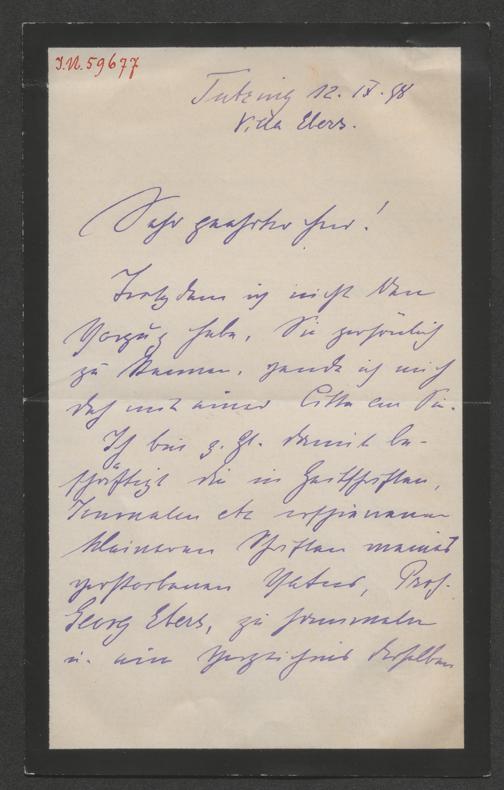 J.N. 59677
Tutzing 12. IX. 98
Villa Ebers.
Sehr geehrter Herr!
Trotzdem ich nicht den
Vorzug habe, Sie persönlich
zu kennen, wende ich mich
doch mit einer Bitte an Sie.
Ich bin z. Zt. damit be-
schäftigt die in Zeitschriften,
Journalen etc erschienenen
kleineren Schriften meines
verstorbenen Vaters, Prof.
Georg Ebers, zu sammeln
u. ein Verzeichnis derselben